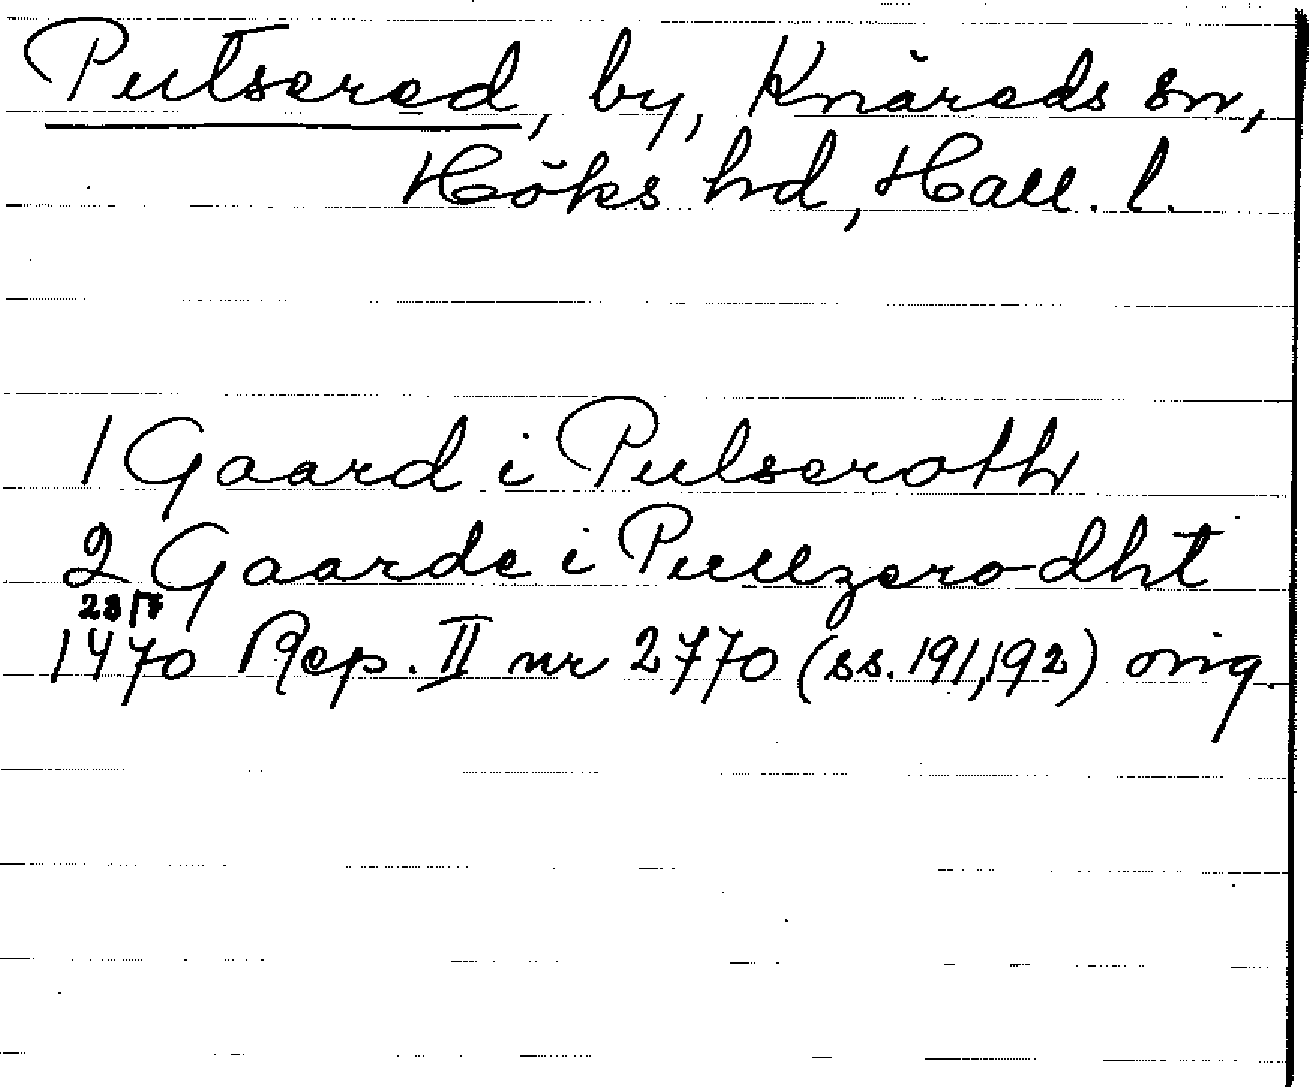 Putsered, by, Knäreds sn,
Höks hd, Hall. l.
1 Gaard i Pulseroth
2 Gaarde i Pullzerodht
23/7
1470 Rep. II nr 2770 (ss. 191,192) orig.